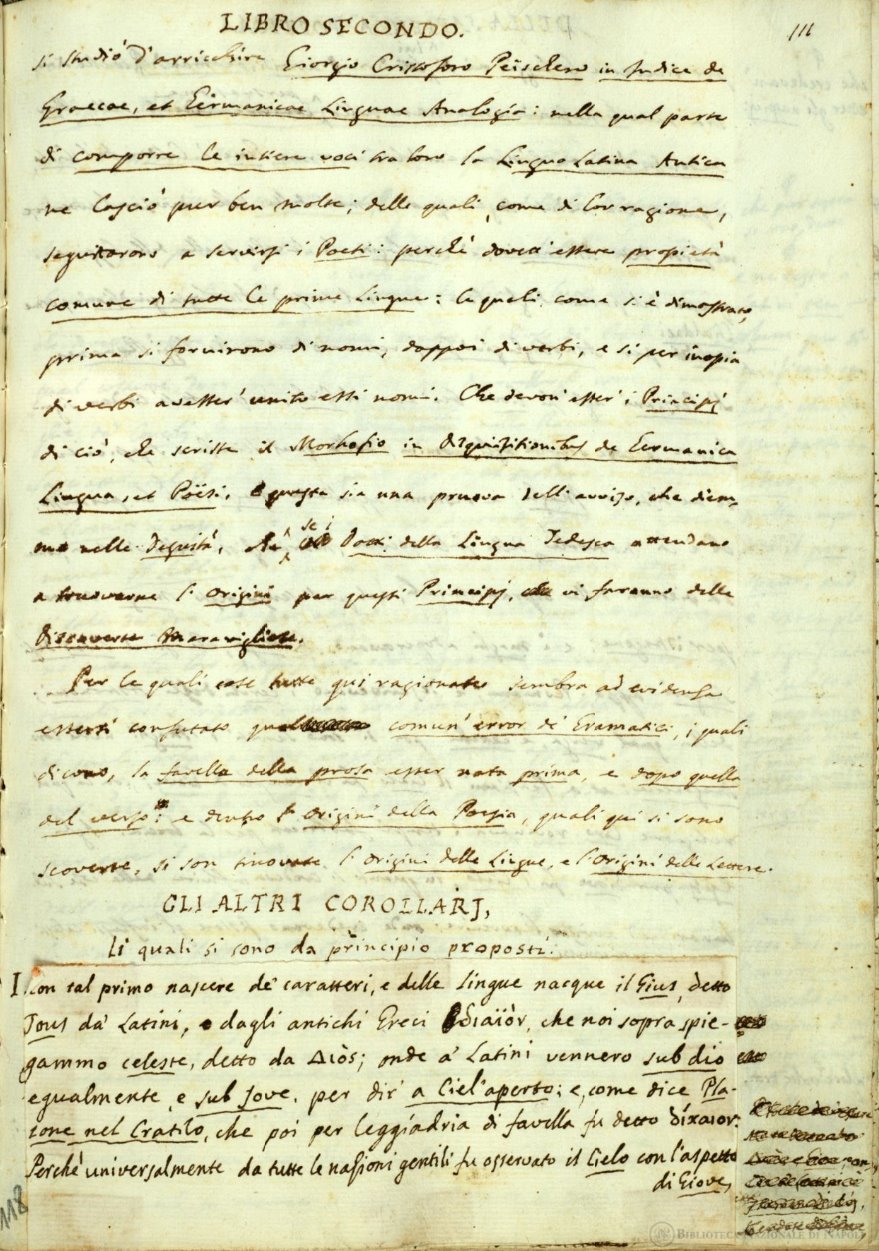 LIBRO SECONDO.
111
si studiò d'arricchire Giorgio Cristoforo Peischero in Indice de
Graecae, et Germanicae Linguae Analogia: nella qual parte
di comporre le intiere voci tra loro la Lingua Latina Antica
ne lasciò pur ben molte; delle quali, come di lor ragione,
seguitarono a servirsi i Poeti: perchè dovett'essere propietà
comune di tutte le prime Lingue: le quali, come si è dimostrato,
prima si fornirono di nomi, dappoi di verbi, e sì per inopia
di verbi avesser' unito essi nomi. Che devon' esser' i Principj
di ciò, che scrisse il Morhofio in Disquisitionibus de Germanica
Lingua, et Poësi. e questa sia una pruova dell'avviso, che diem-
mo nelle Degnità, che se i Dotti della Lingua Tedesca attendano
a truovarne l'origini per questi Principj, vi faranno delle
discoverte maravigliose.
Per le quali cose tutte qui ragionate sembra ad evidenza
essersi confutato quel comun' error de' Gramatici, i quali
dicono, la favella della prosa esser nata prima, e dopo quella
del verso: e dentro l'origini della Poesia, quali qui si sono
scoverte, si son truovate l'origini delle Lingue, e l'origini delle Lettere.
GLI ALTRI COROLLARJ,
Li quali si sono da principio proposti.
I. Con tal primo nascere de' caratteri, e delle lingue nacque il Gius, detto
Ious da' Latini, e dagli antichi Greci διαϊόν, che noi sopra spie-
gammo celeste, detto da Διός; onde a' Latini vennero sub dio
egualmente, e sub Jove, per dir' a Ciel' aperto: e, come dice Pla-
tone nel Cratilo, che poi per leggiadria di favella fu detto δίκαιον.
Perchè universalmente da tutte le nazioni gentili fu osservato il Cielo con l'aspetto
di Giove,
118
BIBLIOTECA NAZIONALE DI NAPOLI